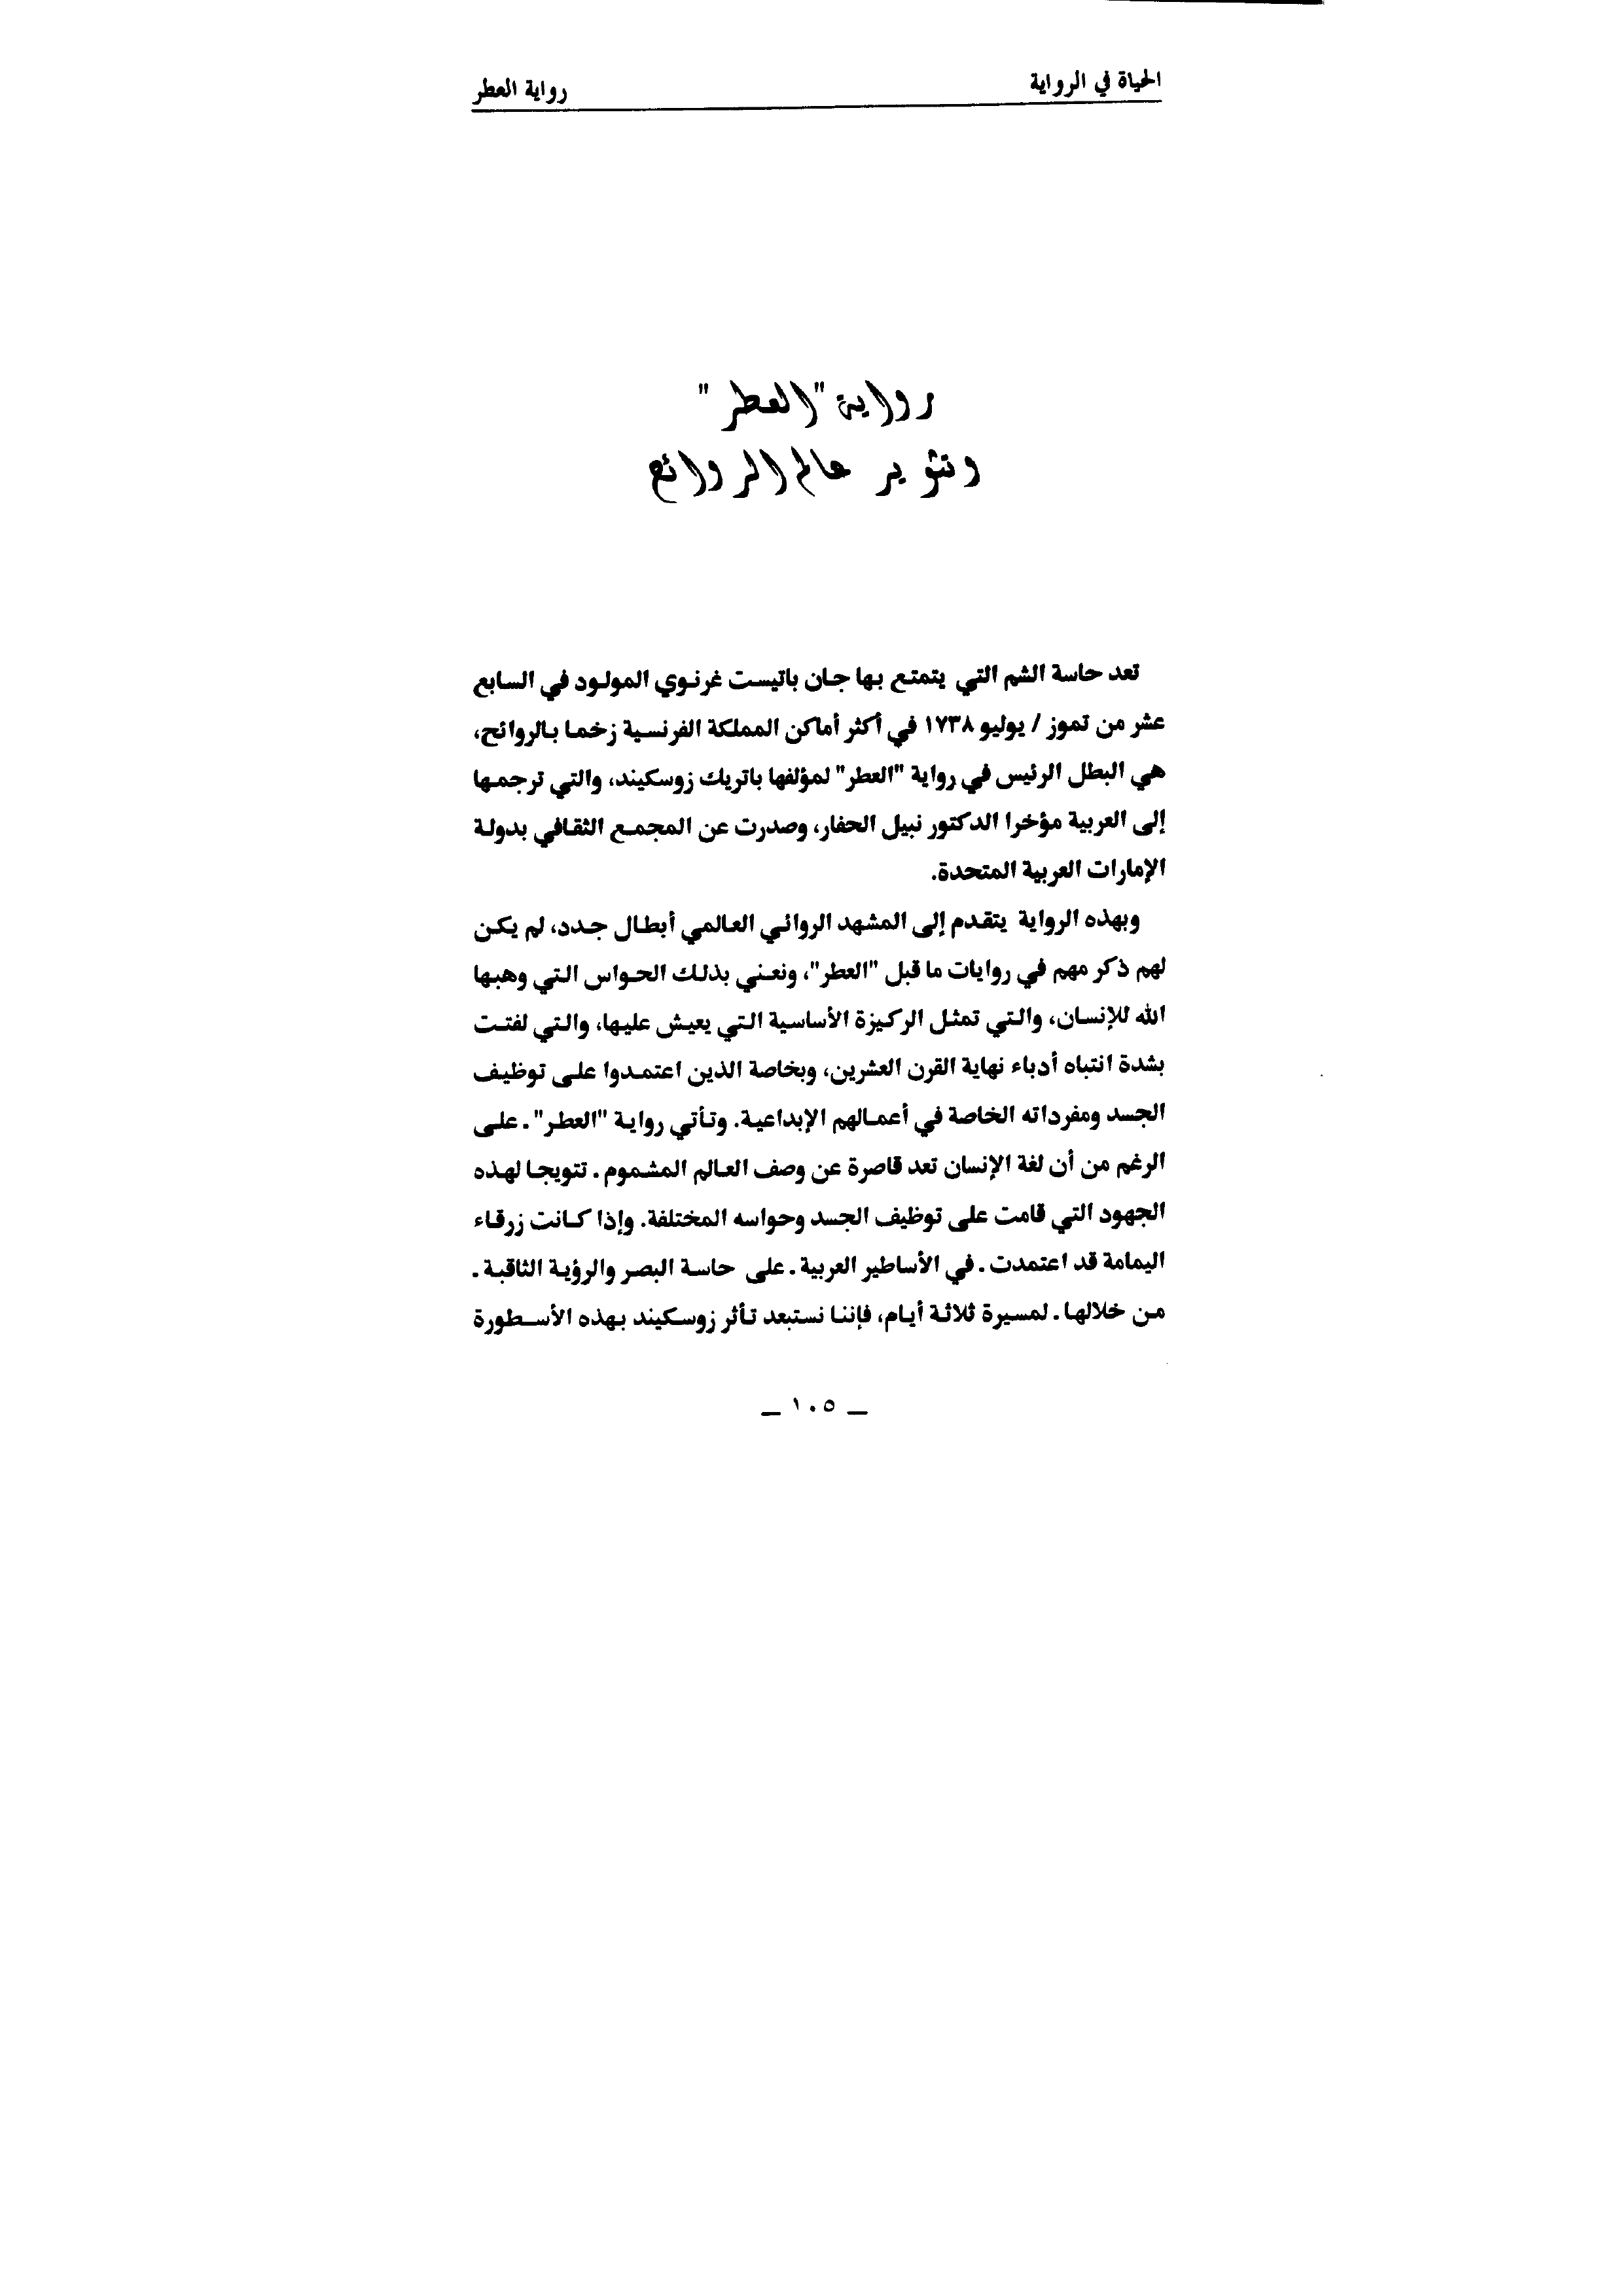 الحياة في الرواية
رواية العطر
رواية "العطر"
وتثوير عالم الروائح
تعد حاسة الشم التي يتمتع بها جان باتيست غرنوي المولود في السابع
عشر من تموز / يوليو ١٧٣٨ في أكثر أماكن المملكة الفرنسية زخما بالروائح،
هي البطل الرئيس في رواية "العطر" لمؤلفها باتريك زوسكيند، والتي ترجمها
إلى العربية مؤخرا الدكتور نبيل الحفار، وصدرت عن المجمع الثقافي بدولة
الإمارات العربية المتحدة.
وبهذه الرواية يتقدم إلى المشهد الروائي العالمي أبطال جدد، لم يكن
لهم ذكر مهم في روايات ما قبل "العطر"، ونعني بذلك الحواس التي وهبها
الله للإنسان، والتي تمثل الركيزة الأساسية التي يعيش عليها، والتي لفتت
بشدة انتباه أدباء نهاية القرن العشرين، وبخاصة الذين اعتمدوا على توظيف
الجسد ومفرداته الخاصة في أعمالهم الإبداعية. وتأتي رواية "العطر" ـ على
الرغم من أن لغة الإنسان تعد قاصرة عن وصف العالم المشموم ـ تتويجا لهذه
الجهود التي قامت على توظيف الجسد وحواسه المختلفة. وإذا كانت زرقاء
اليمامة قد اعتمدت ـ في الأساطير العربية ـ على حاسة البصر والرؤية الثاقبة ـ
من خلالها ـ لمسيرة ثلاثة أيام، فإننا نستبعد تأثر زوسكيند بهذه الأسطورة
ـ ١٠٥ ـ